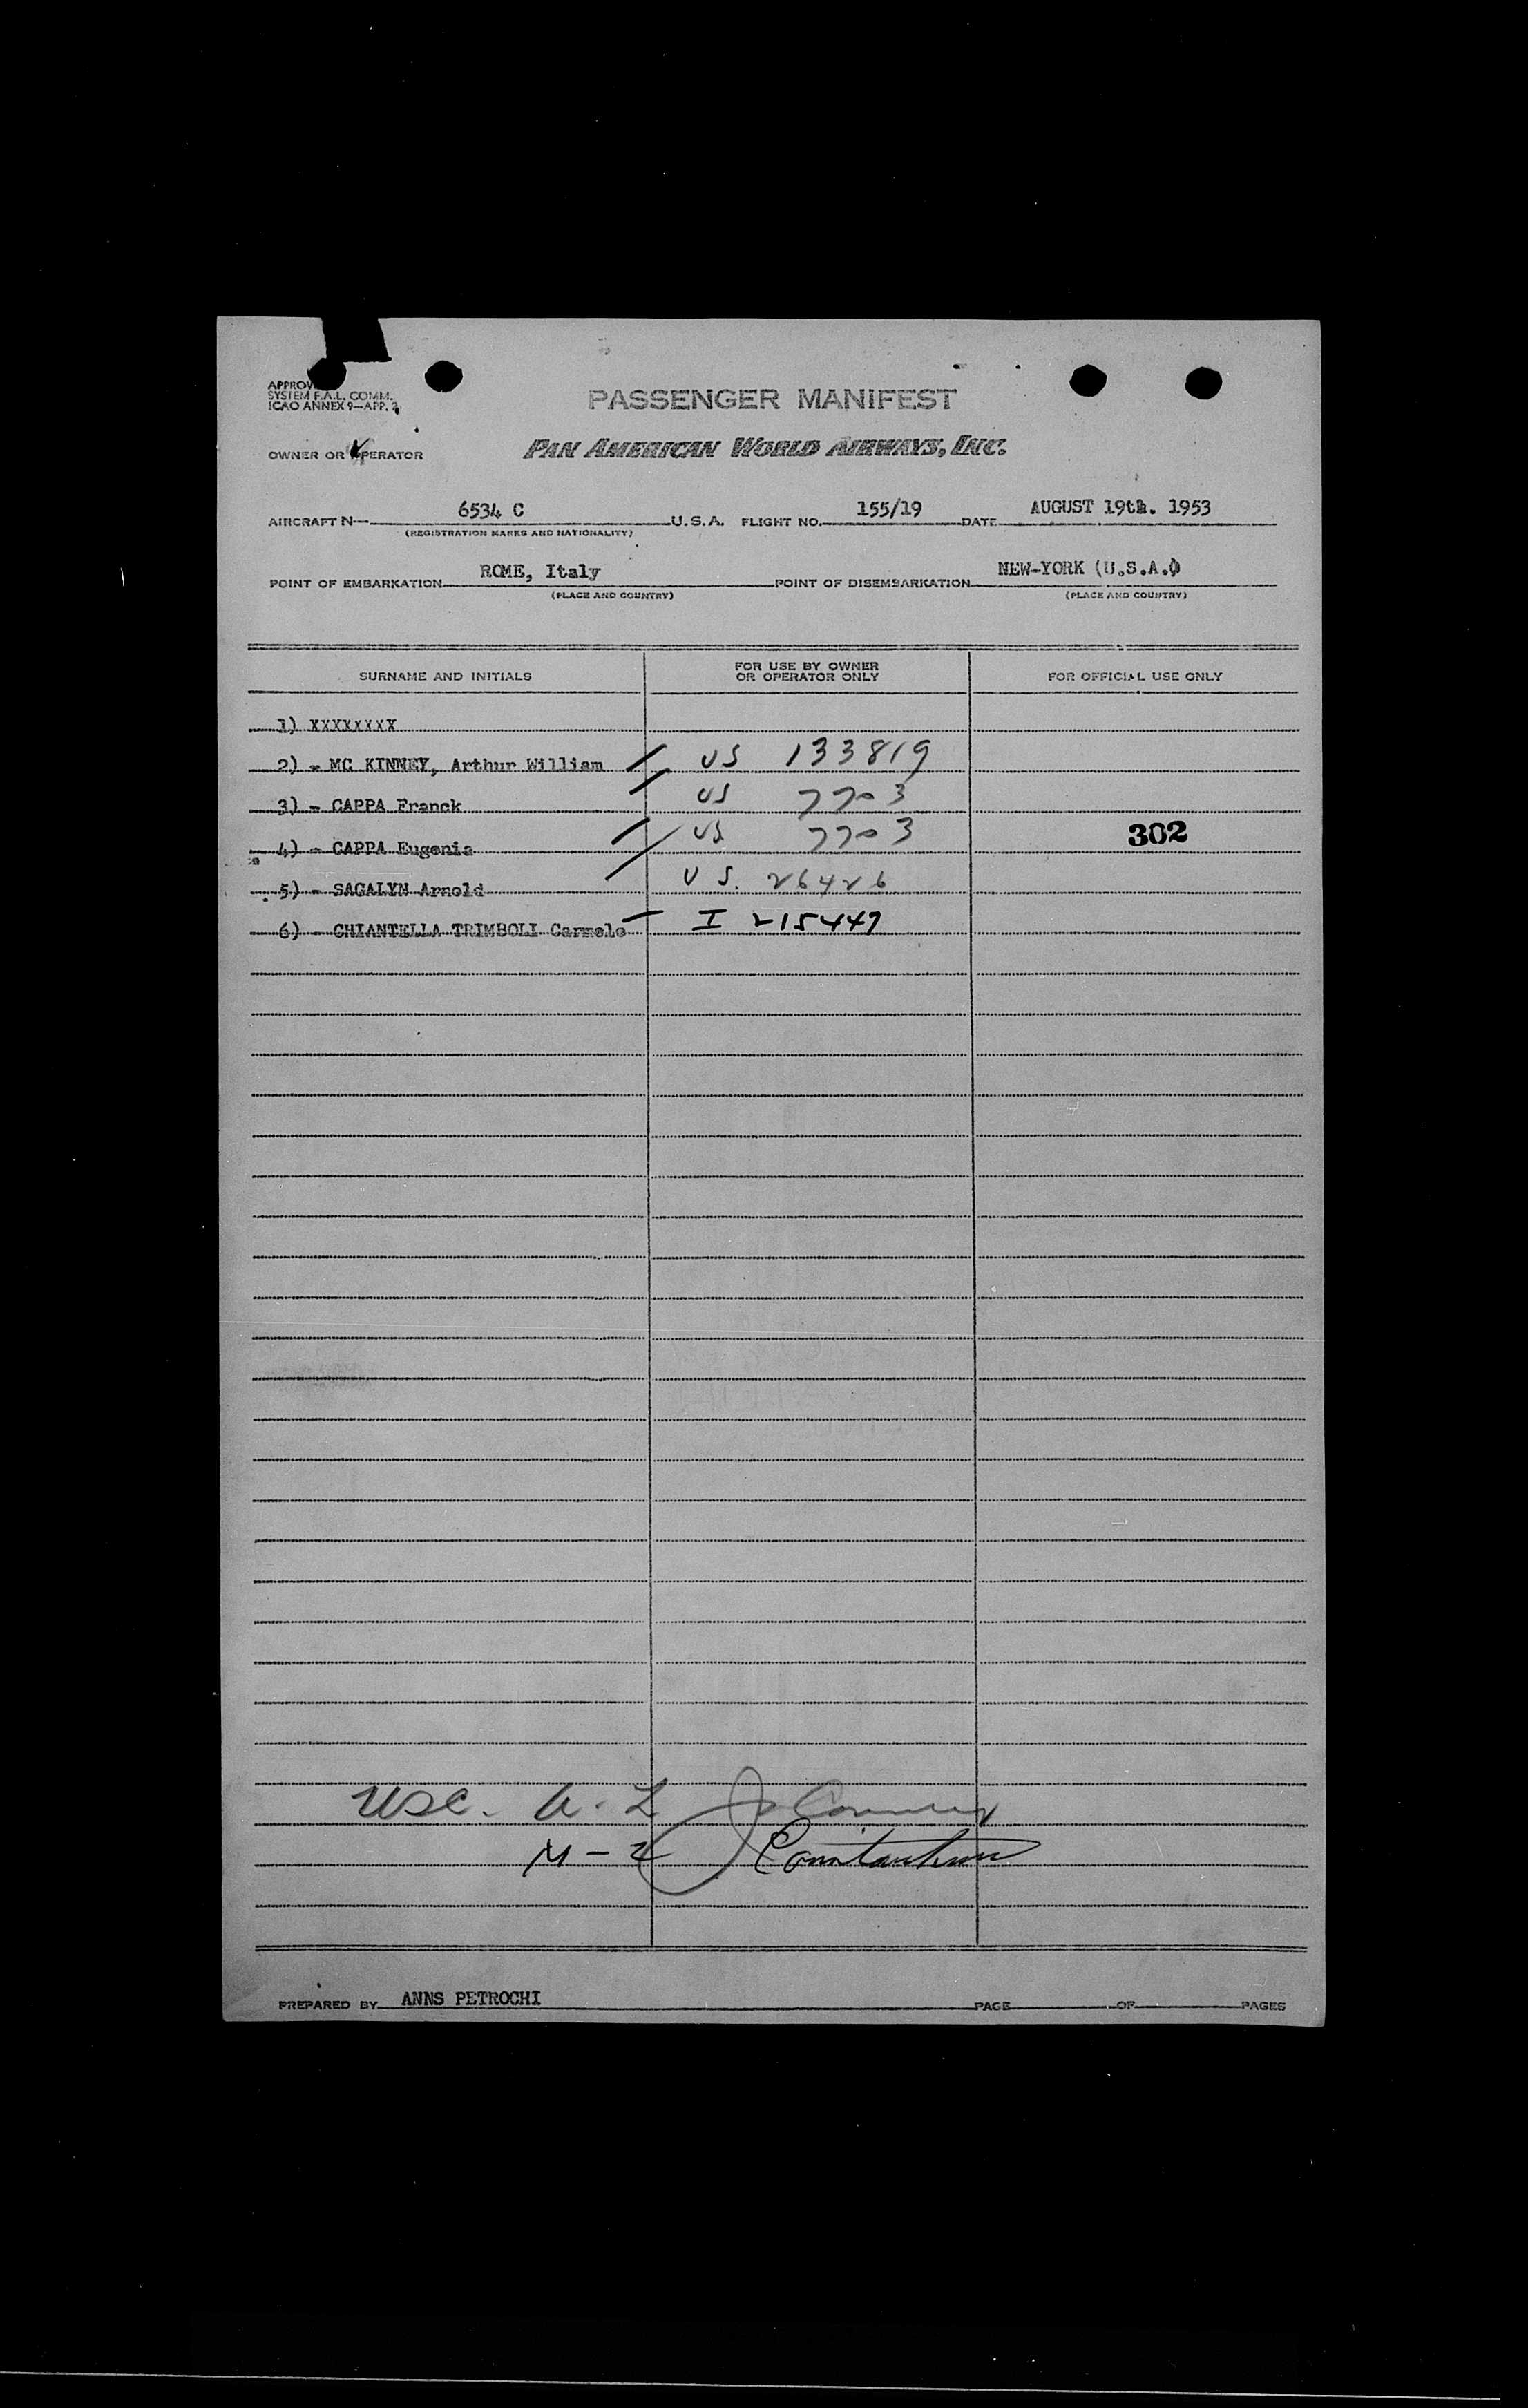 APPROV
SYSTEM F.A.L. COMM.
ICAO ANNEX 9—APP. 2
PASSENGER MANIFEST
OWNER OR OPERATOR PAN AMERICAN WORLD AIRWAYS, INC.
AIRCRAFT N— 6534 C U.S.A. FLIGHT NO. 155/19 DATE AUGUST 19th. 1953
(REGISTRATION MARKS AND NATIONALITY)
POINT OF EMBARKATION ROME, Italy POINT OF DISEMBARKATION NEW-YORK (U.S.A.)
(PLACE AND COUNTRY) (PLACE AND COUNTRY)
SURNAME AND INITIALS FOR USE BY OWNER OR OPERATOR ONLY FOR OFFICIAL USE ONLY
1) XXXXXXXX
2) - MC KINNEY, Arthur William US 133819
3) - CAPPA Franck US 7703
4) - CAPPA Eugenia US 7703 302
5) - SAGALYN Arnold U S. 26426
6) - CHIANTELLA TRIMBOLI Carmelo I 215447
USC.
M-2
PREPARED BY ANNS PETROCHI PAGE OF PAGES